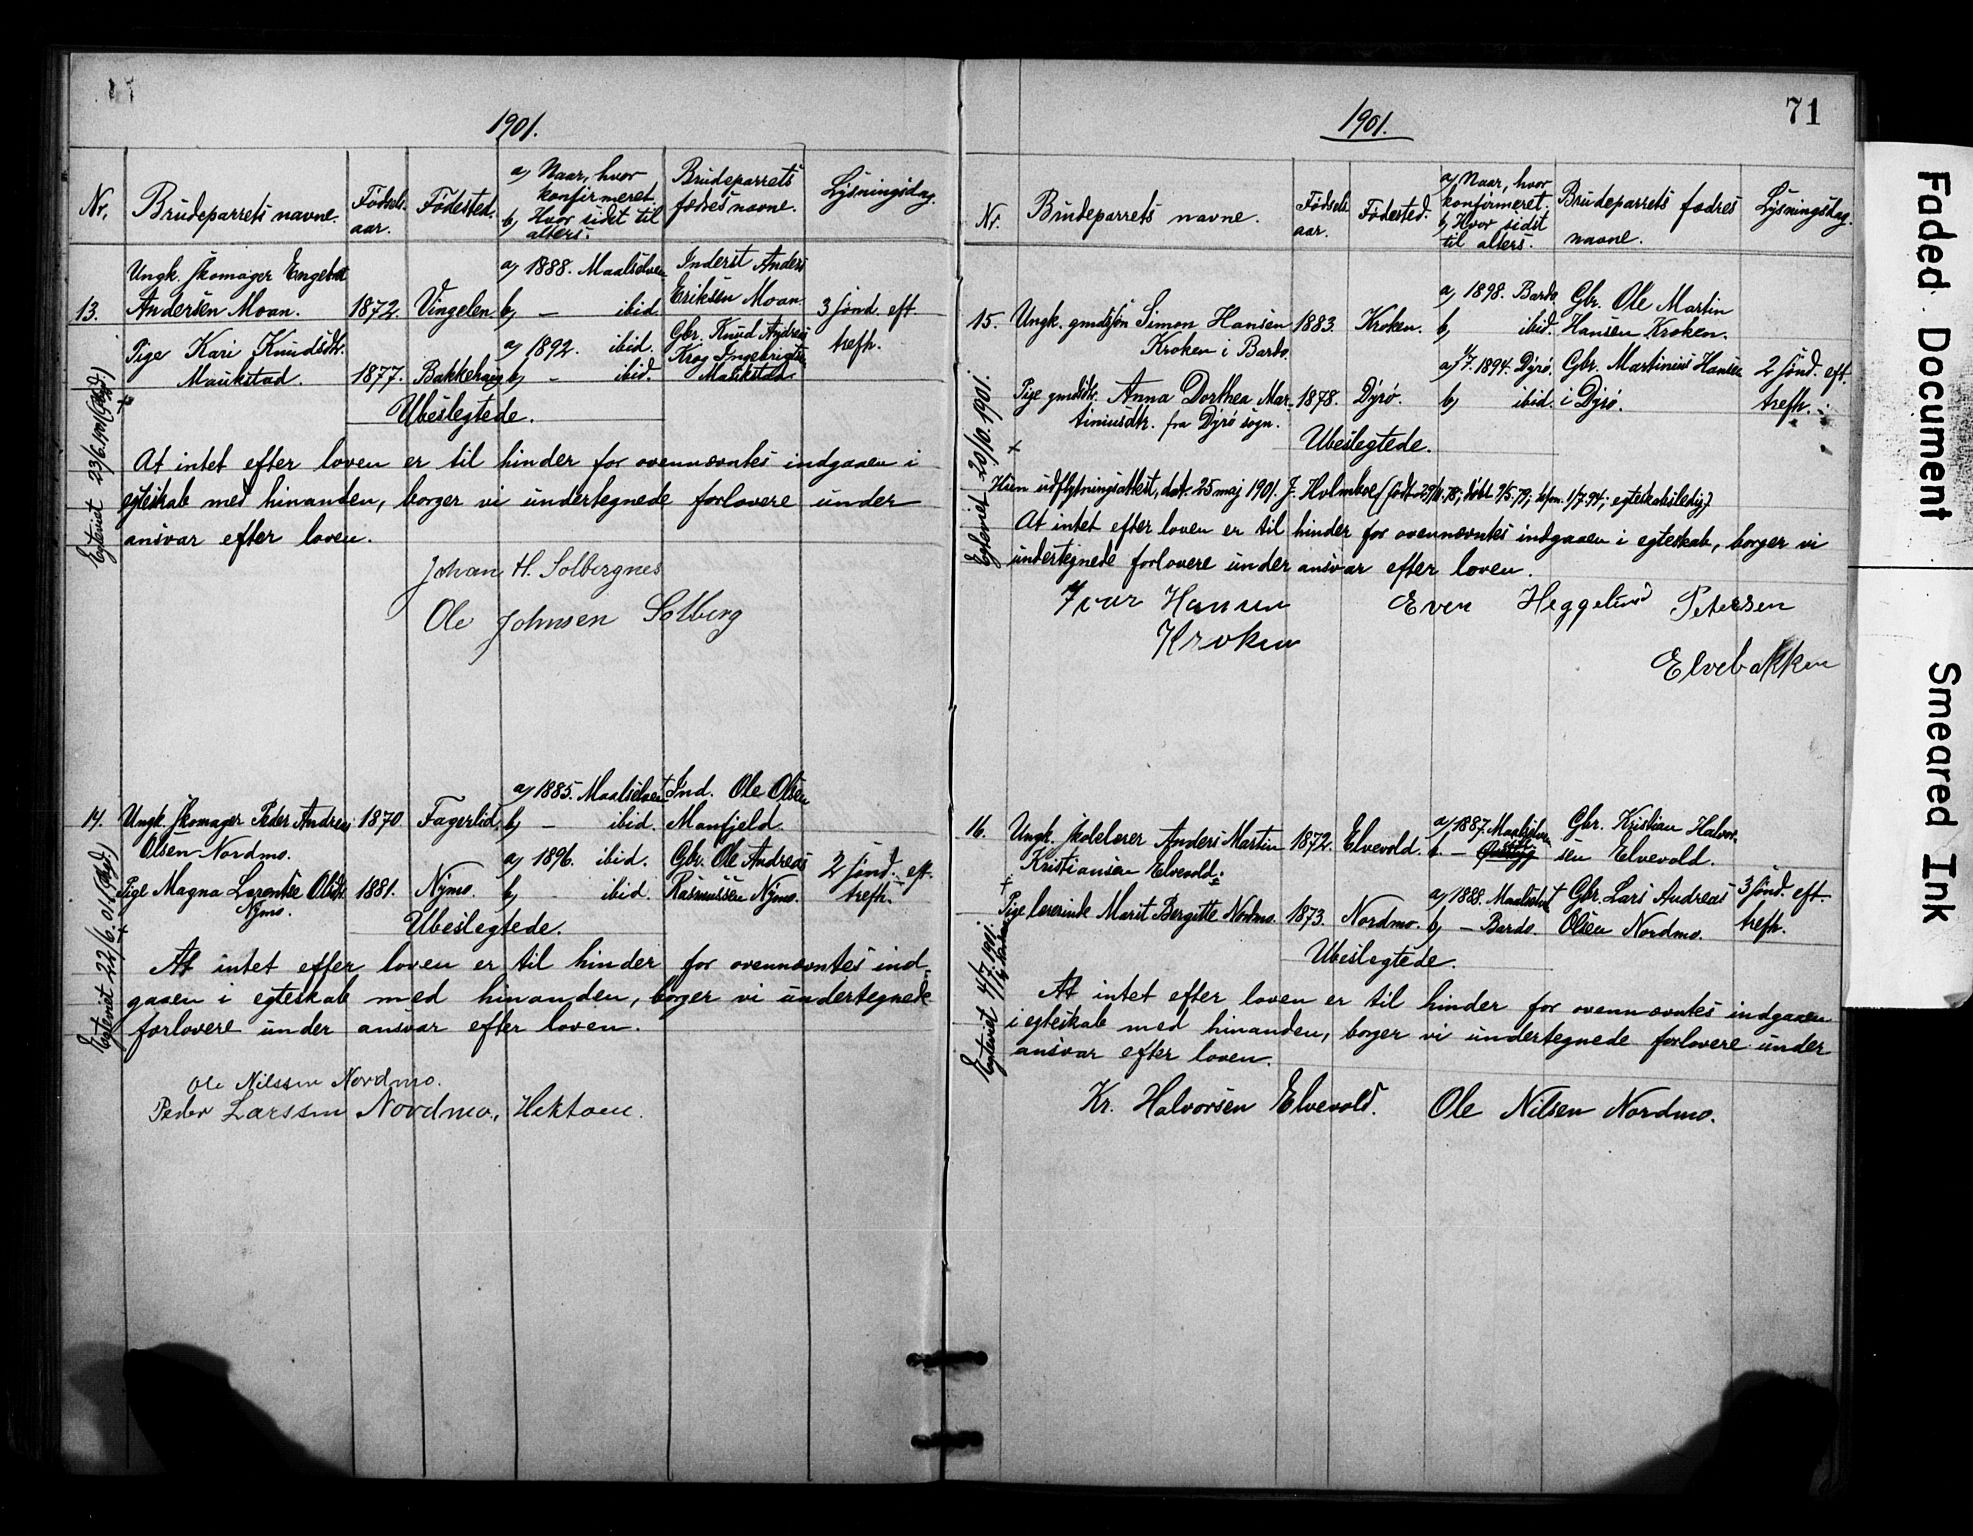 1901.
Nr. Brudeparrets navne. Fødsels aar. Fødested. a) Naar, hvor konfirmeret. b) Hvor sidst til alters. Brudeparrets fædres navne. Lysningsdag.
Ungk. skomager Engebret a) 1888. Maalselven Inderst Anders
13. Andersen Moan. 1872. Vingelen b) — ibid. Eriksen Moan. 3 sønd. eft.
Pige Kari Knudsdtr. a) 1892. ibid. Gbr. Knud Andreas trefh.
Krog Ingebrigtsen
Maukstad. 1877. Bakkehaug b) — ibid. Maukstad.
Ubeslegtede.
Egteviet 23/6. 1901
At intet efter loven er til hinder for ovennævntes indgaaen i
egteskab med hinanden, borger vi undertegnede forlovere under
ansvar efter loven.
Johan H. Solbergnes
Ole Johnsen Solberg
a) 1885. Maalselven Ind. Ole Olsen
14. Ungk. skomager Peder Andreas 1870 Fagerlid. b) — ibid. Manfjeld.
Olsen Nordmo. a) 1896. ibid. Gbr. Ole Andreas 2 sønd. eft.
Pige Magna Lorentse Olsdtr. 1881. Nymo. b) — ibid. Rasmussen Nymo. trefh.
Nymo.
Ubeslegtede.
Egteviet 22/6. 01.
At intet efter loven er til hinder for ovennævntes ind-
gaaen i egteskab med hinanden, borger vi undertegnede
forlovere under ansvar efter loven.
Ole Nilssen Nordmo.
Peder Larssen Nordmo, Hektoen.
71
1901.
Nr. Brudeparrets navne. Fødsels aar. Fødested. a) Naar, hvor konfirmeret. b) Hvor sidst til alters. Brudeparrets fædres navne. Lysningsdag.
a) 1898. Bardo. Gbr. Ole Martin
15. Ungk. gmdsøn Simon Hansen 1883. Kroken. b) ibid. Hansen Kroken.
Kroken i Bardo.
a) 1/7. 1894. Dyrø. Gbr. Martinius Hansen 2 sønd. eft.
Pige gmddtr. Anna Dorthea Mar- 1878. Dyrø. b) ibid. i Dyrø. trefh.
tiniusdtr. fra Dyrø sogn.
Ubeslegtede.
Egteviet 20/10. 1901.
Hun udflytningsattest, dat. 25 maj 1901. J. Holmboe (født 29/11. 78; døbt 9/5. 79; kofm. 1/7. 94; egteskabsledig)
At intet efter loven er til hinder for ovennævntes indgaaen i egteskab, borger vi
undertegnede forlovere under ansvar efter loven.
Ivar Hansen Even Heggelund Petersen
Kroken
Elvebakken
16. Ungk. skolelærer Anders Martin 1872. Elvevold. a) 1887. Maalselven Gbr. Kristian Halvor-
Kristiansen Elvevold. b — sen Elvevold.
a) 1888. Maalselv Gbr. Lars Andreas 3 sønd. eft.
Pige lærerinde Marit Bergitte Nordmo. 1873. Nordmo. b) — Bardo. Olsen Nordmo. trefh.
Ubeslegtede.
Egteviet 4/7. 1901.
At intet efter loven er til hinder for ovennævntes indgaaen
i egteskab med hinanden, borger vi undertegnede forlovere under
ansvar efter loven.
Kr. Halvorsen Elvevold. Ole Nilsen Nordmo.
Faded Document
Smeared Ink